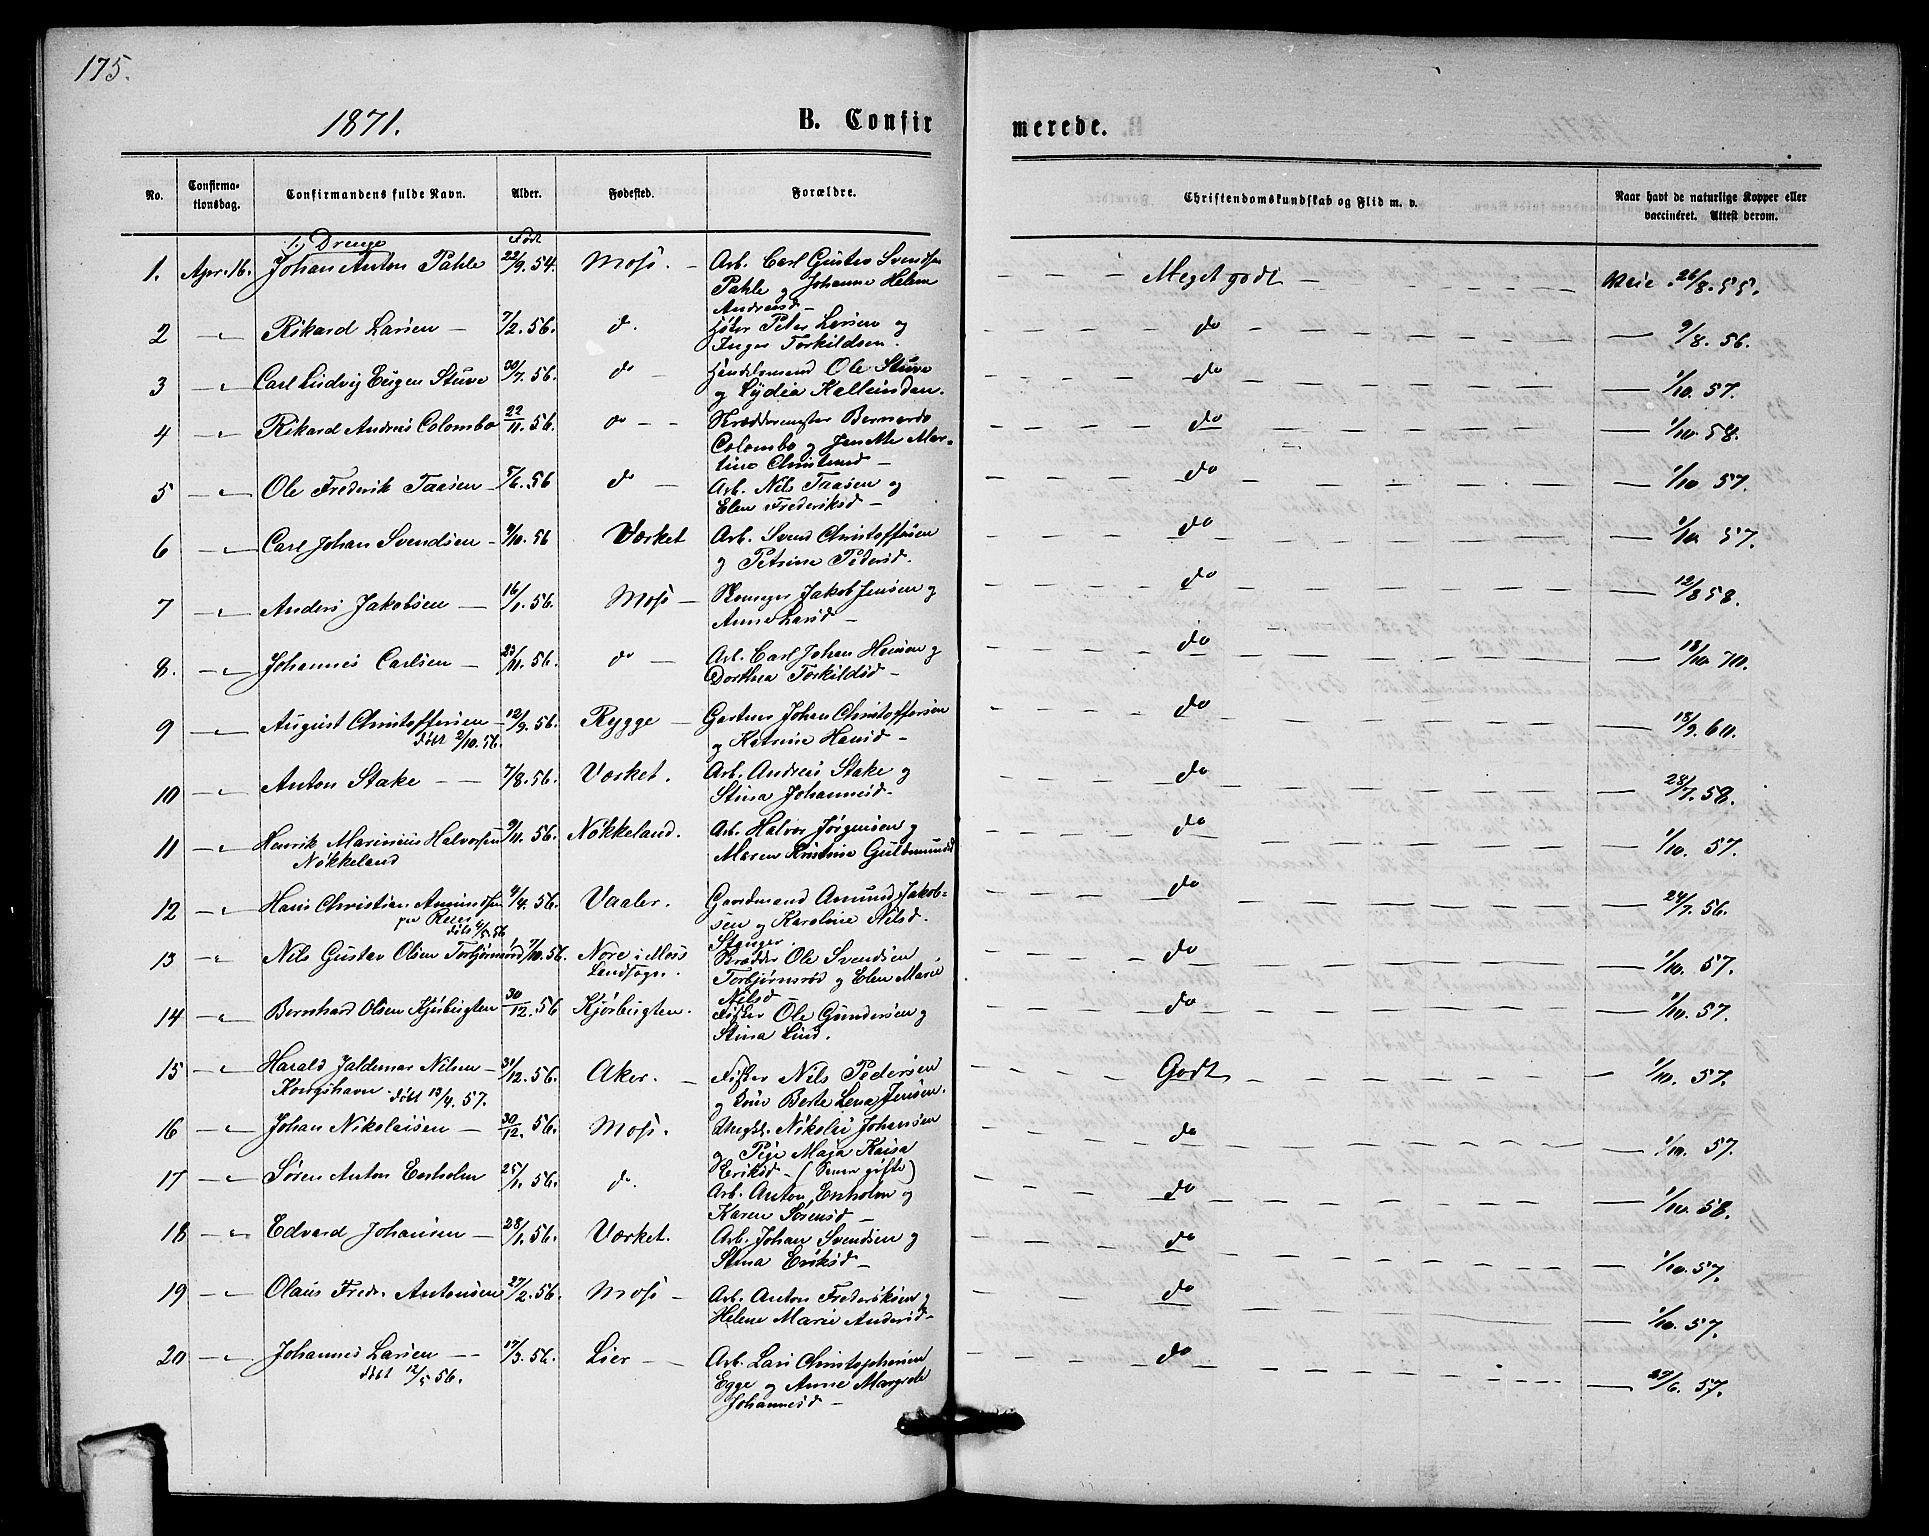 175.
1871.
B. Confirmerede.
No. Confirmationsdag. Confirmandens fulde Navn. Alder. Fødested. Forældre. Christendomskundskab og Flid m. v. Naar havt de naturlige Kopper eller vaccineret. Attest derom.
1.) Drenge Født
1. Apr. 16. Johan Anton Pahle 22/9. 54. Moss. – Arb. Carl Gustav Svendsen – – – Meget godt – 26/8. 55.
Pahle og Johanne Helene
Andreasd –
2 –„– Rikard Larsen – 7/2. 56. do. Peter Larsen og – – – do – – – 9/8. 56.
Inger Torkildsen.
3 –„– Carl Ludvig Eugen Stuve 30/7. 56. do – Handelsmand Ole Stuve – – – do – – – 1/10. 57.
og Lydia
4 –„– Rikard Andreas Colombo 22/11. 56. do – – Skræddermester Bernardo – – – do – – – 1/10. 58.
Colombo og Jenette Mar-
tine –
5 –„– Ole Frederik Taasen – 5/6. 56 do – Arb. Nils Taasen og – – – do – – – 1/10 57.
Elen Frederiksd –
6 –„– Carl Johan Svendsen – 9/10. 56 Værket Arb. Svend Christoffersen – – – do – – – 1/10. 57.
og Petrine Pedersd.
7 –„– Anders Jakobsen – 16/1. 56. Moss – Jakob Jensen og – – – do – – – 12/8 58.
Anne Larsd –
8. –„– Johannes Carlsen – 23/11. 56. do – Arb. Carl Johan Hansen og – – – do – – – 18/10. 70.
Dorthea Torkildsd –
9 –„– August Christoffersen – 12/9. 56. Rygge – Gartner Johan Christoffersen – – – do – – – 18/9. 60.
døbt 2/10. 56. og Katrine Hansd –
10 –„– Anton Stake – – 7/8. 56. Værket. Arb. Andreas Stake og – – – do – – – 28/7. 58.
Stina Johannesd –
11 –„– Henrik Marinius Halvorsen 9/11. 56. Nøkkeland. Arb. Halvor Jørgensen og – – – do – – – 1/10. 57.
Nøkkeland Maren Kristine Gulbrandsd
12 –„– Hans Christian Amundsen 4/4. 56. Vaaler. Gaardmand Amund Jakob- – – – do – – – 24/7. 56.
døbt 4/5 56 sen og Karoline Nilsd.
Stanger.
13 –„– Nils Gustav Olsen Torbjørnsrød 7/10. 56. Nore i Moss Ole Svendsen – – – do – – – 1/10. 57.
Landsogn. Torbjørnsrød og Elen Marie
Nilsd –
14 –„– Bernhard Olsen Kjørbugten 30/12. 56 Kjørbugten. Fisker Ole Gundersen og – – – do – – – 1/10. 57.
Stina Lind.
15 –„– Harald Jaldemar Nilsen – 31/12. 56. Aker. – Fisker Nils Pedersen – – – Godt – – – 1/10. 57.
Kongshavn. døbt 13/4. 57. og Berte Lena Jensen.
16 –„– Johan Nikolaisen – 30/12. 56. Moss. Nikolai Johansen – – – do – – – 1/10. 57.
og Pige Maja Kaisa
Eriksd – (Senere gifte)
17 –„– Søren Anton Enholm 25/1. 56. do. Arb. Anton Enholm og – – – do – – – 1/10. 58.
Karen Sørensd –
18 –„– Edvard Johansen – 28/1. 56. Værket. Arb. Johan Svendsen og – – – do – – – 1/10. 57.
Stina Eriksd –
19 –„– Olaus Fredr. Antonsen 27/2. 56. Moss – Arb. Anton Frederiksen og – – – do – – – 1/10. 57.
Helene Marie Andersd –
20 –„– Johannes Larsen – – 17/3. 56. Lier – Arb. Lars Christophersen – – – do – – – 29/6. 57.
døbt 12/5 56. Egge og Anne Margrete
Johannesd –